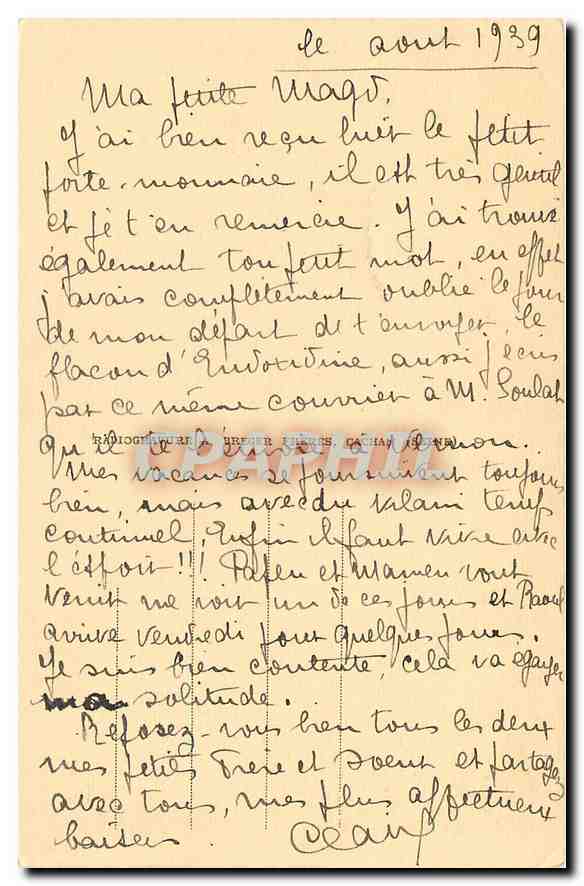 le aout 1939
Ma petite Mago,
J'ai bien reçu hier le petit
porte-monnaie, il est très gentil
et je t'en remercie. J'ai trouvé
également ton petit mot, en effet
j'avais complètement oublié le jour
de mon départ de t'envoyer le
flacon d'Endoxidine, aussi j'écris
par ce même courrier à M. Soulat
qu'il te l'envoie à Vernon.
RADIOGRAVURE A. BREGER FRÈRES, CACHAN (SEINE)
CPAPHIL
Mes vacances se poursuivent toujours
bien, mais avec du vilain temps
continuel, Enfin il faut vivre avec
l'espoir!!! Papeu et Mameu vont
venir me voir un de ces jours et Raoul
arrive vendredi pour quelques jours.
Je suis bien contente, cela va égayer
ma solitude.
Reposez-vous bien tous les deux
mes petits Frère et Soeur et partagez
avec tous, mes plus affectueux
baisers. Clair